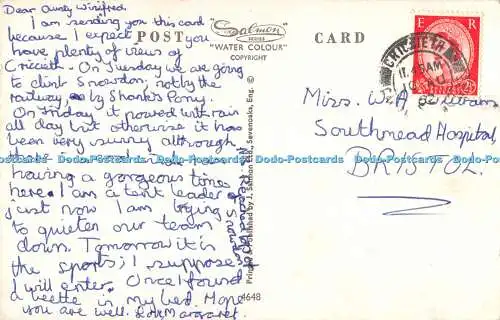 Dear Aunty Winifred,
I am sending you this card
because I expect you
have plenty of views of
Criccieth. On Tuesday we are going
to climb Snowdon, not by the
railway, by Shank's Pony.
On Friday it poured with rain
all day but otherwise it has
been very sunny although
having a gorgeous time
here. I am a tent leader &
just now I am trying
to quieten our team
down. Tomorrow it is
the sports; I suppose
I will enter. Once I found
a beetle in my bed. Hope
you are well. Love Margaret.
POST CARD
Salmon
SERIES
"WATER COLOUR"
COPYRIGHT
Printed & Published by J. Salmon Ltd., Sevenoaks, Eng. ©
4648
E R
CRICCIETH
Miss. W. A
Southmead Hospital,
BRISTOL.
Dodo-Postcards Dodo-Postcards Dodo-Postcards Dodo-Postcards Dodo-Postcards